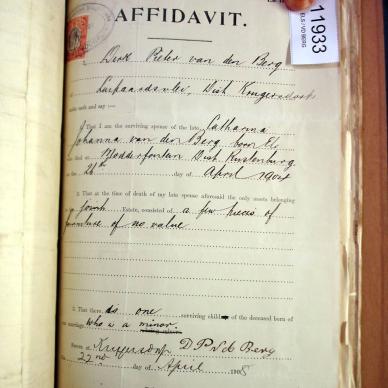 11933
AFFIDAVIT.
I, Dirk Pieter van den Berg
of Luipaardsvlei, Dist Krugersdorp
make oath and say :—
1. That I am the surviving spouse of the late Catharina
Johanna van den Berg born
who died at Modderfontein Dist Rustenburg
on the 26th day of April 1904
2. That at the time of death of my late spouse aforesaid the only assets belonging
to joint Estate, consisted of a few pieces of
furniture of no value
3. That there is one surviving child of the deceased born of
marriage who is a minor.
Sworn at Krugersdorp D P v d Berg
22nd day of April 1908